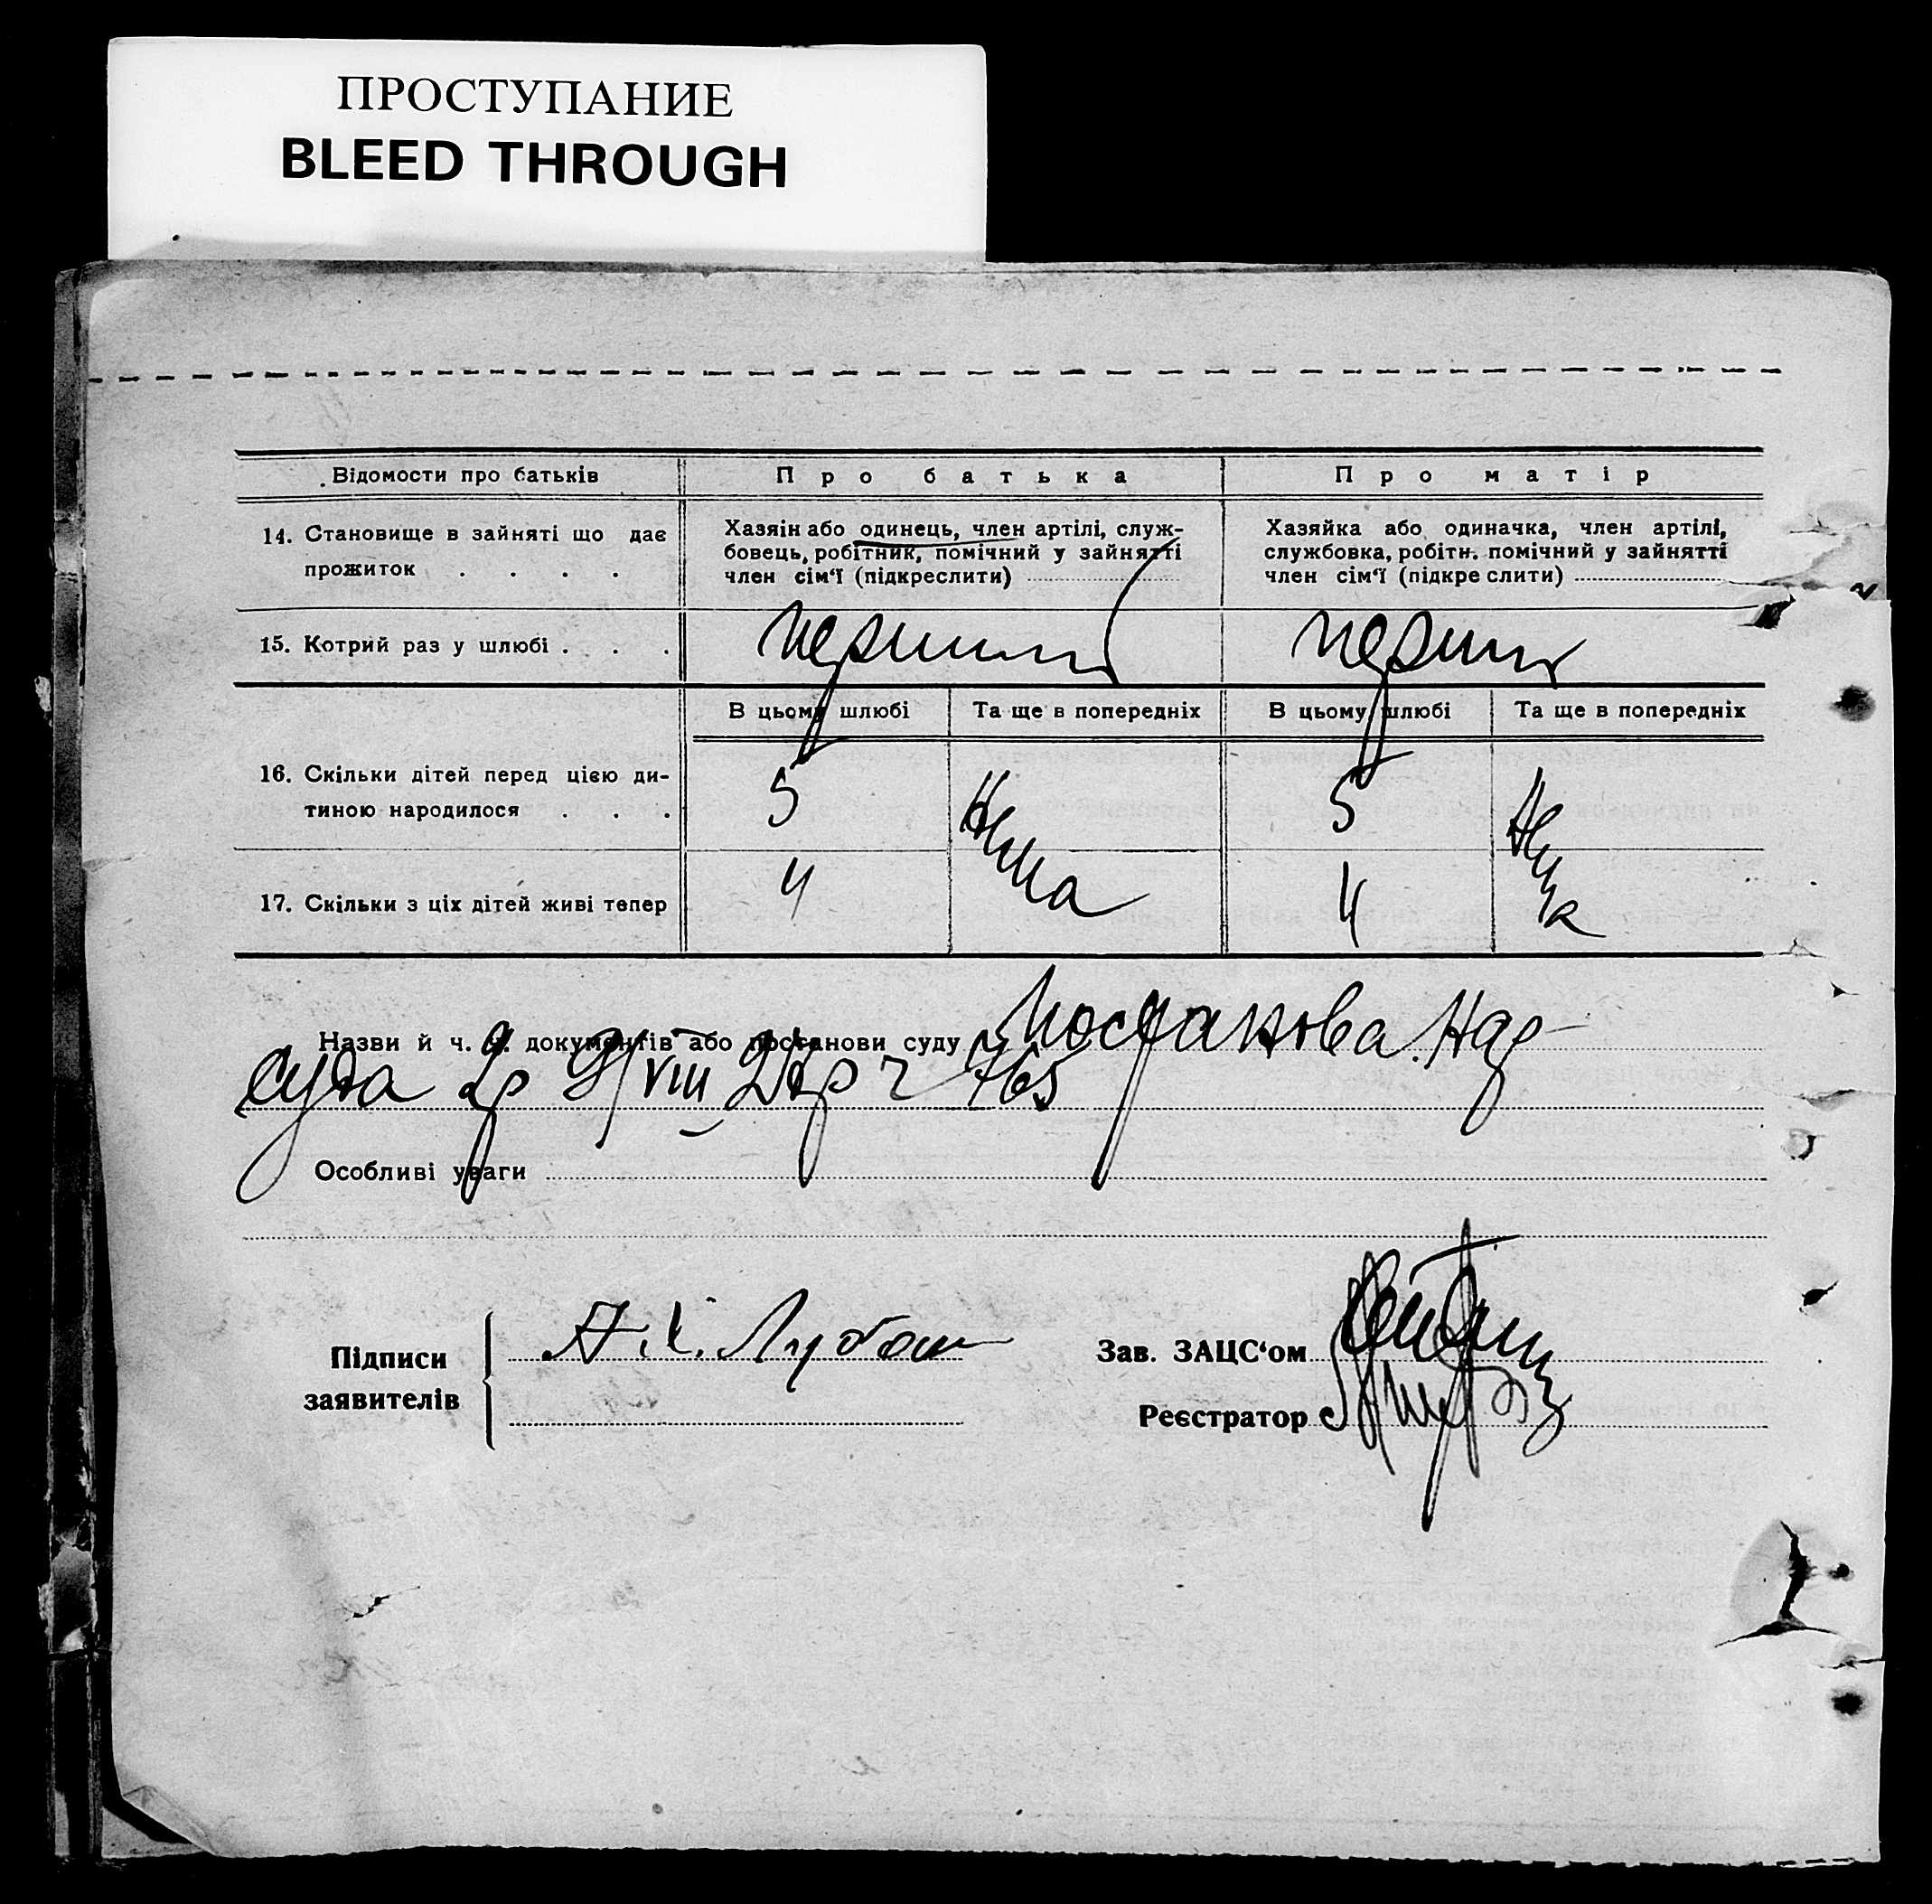 ПРОСТУПАНИЕ
BLEED THROUGH
Відомости про батьків
Про батька
Про матір
14. Становище в зайняті що дає
прожиток . . . .
Хазяін або одинець, член артілі, служ-
бовець, робітник, помічний у зайнятті
член сім'ї (підкреслити)
Хазяйка або одиначка, член артілі,
службовка, робітн. помічний у зайнятті
член сім'ї (підкре слити)
15. Котрий раз у шлюбі . . .
первий
первий
В цьому шлюбі
Та ще в попередніх
В цьому шлюбі
Та ще в попередніх
16. Скільки дітей перед цією ди-
тиною народилося . . .
5
Нема
5
17. Скільки з ціх дітей живі тепер
4
4
Назви й ч. ч. документів або постанови суду Нар
суда 765
Особливі уваги
Підписи
заявителів
Зав. ЗАЦС'ом
Реєстратор